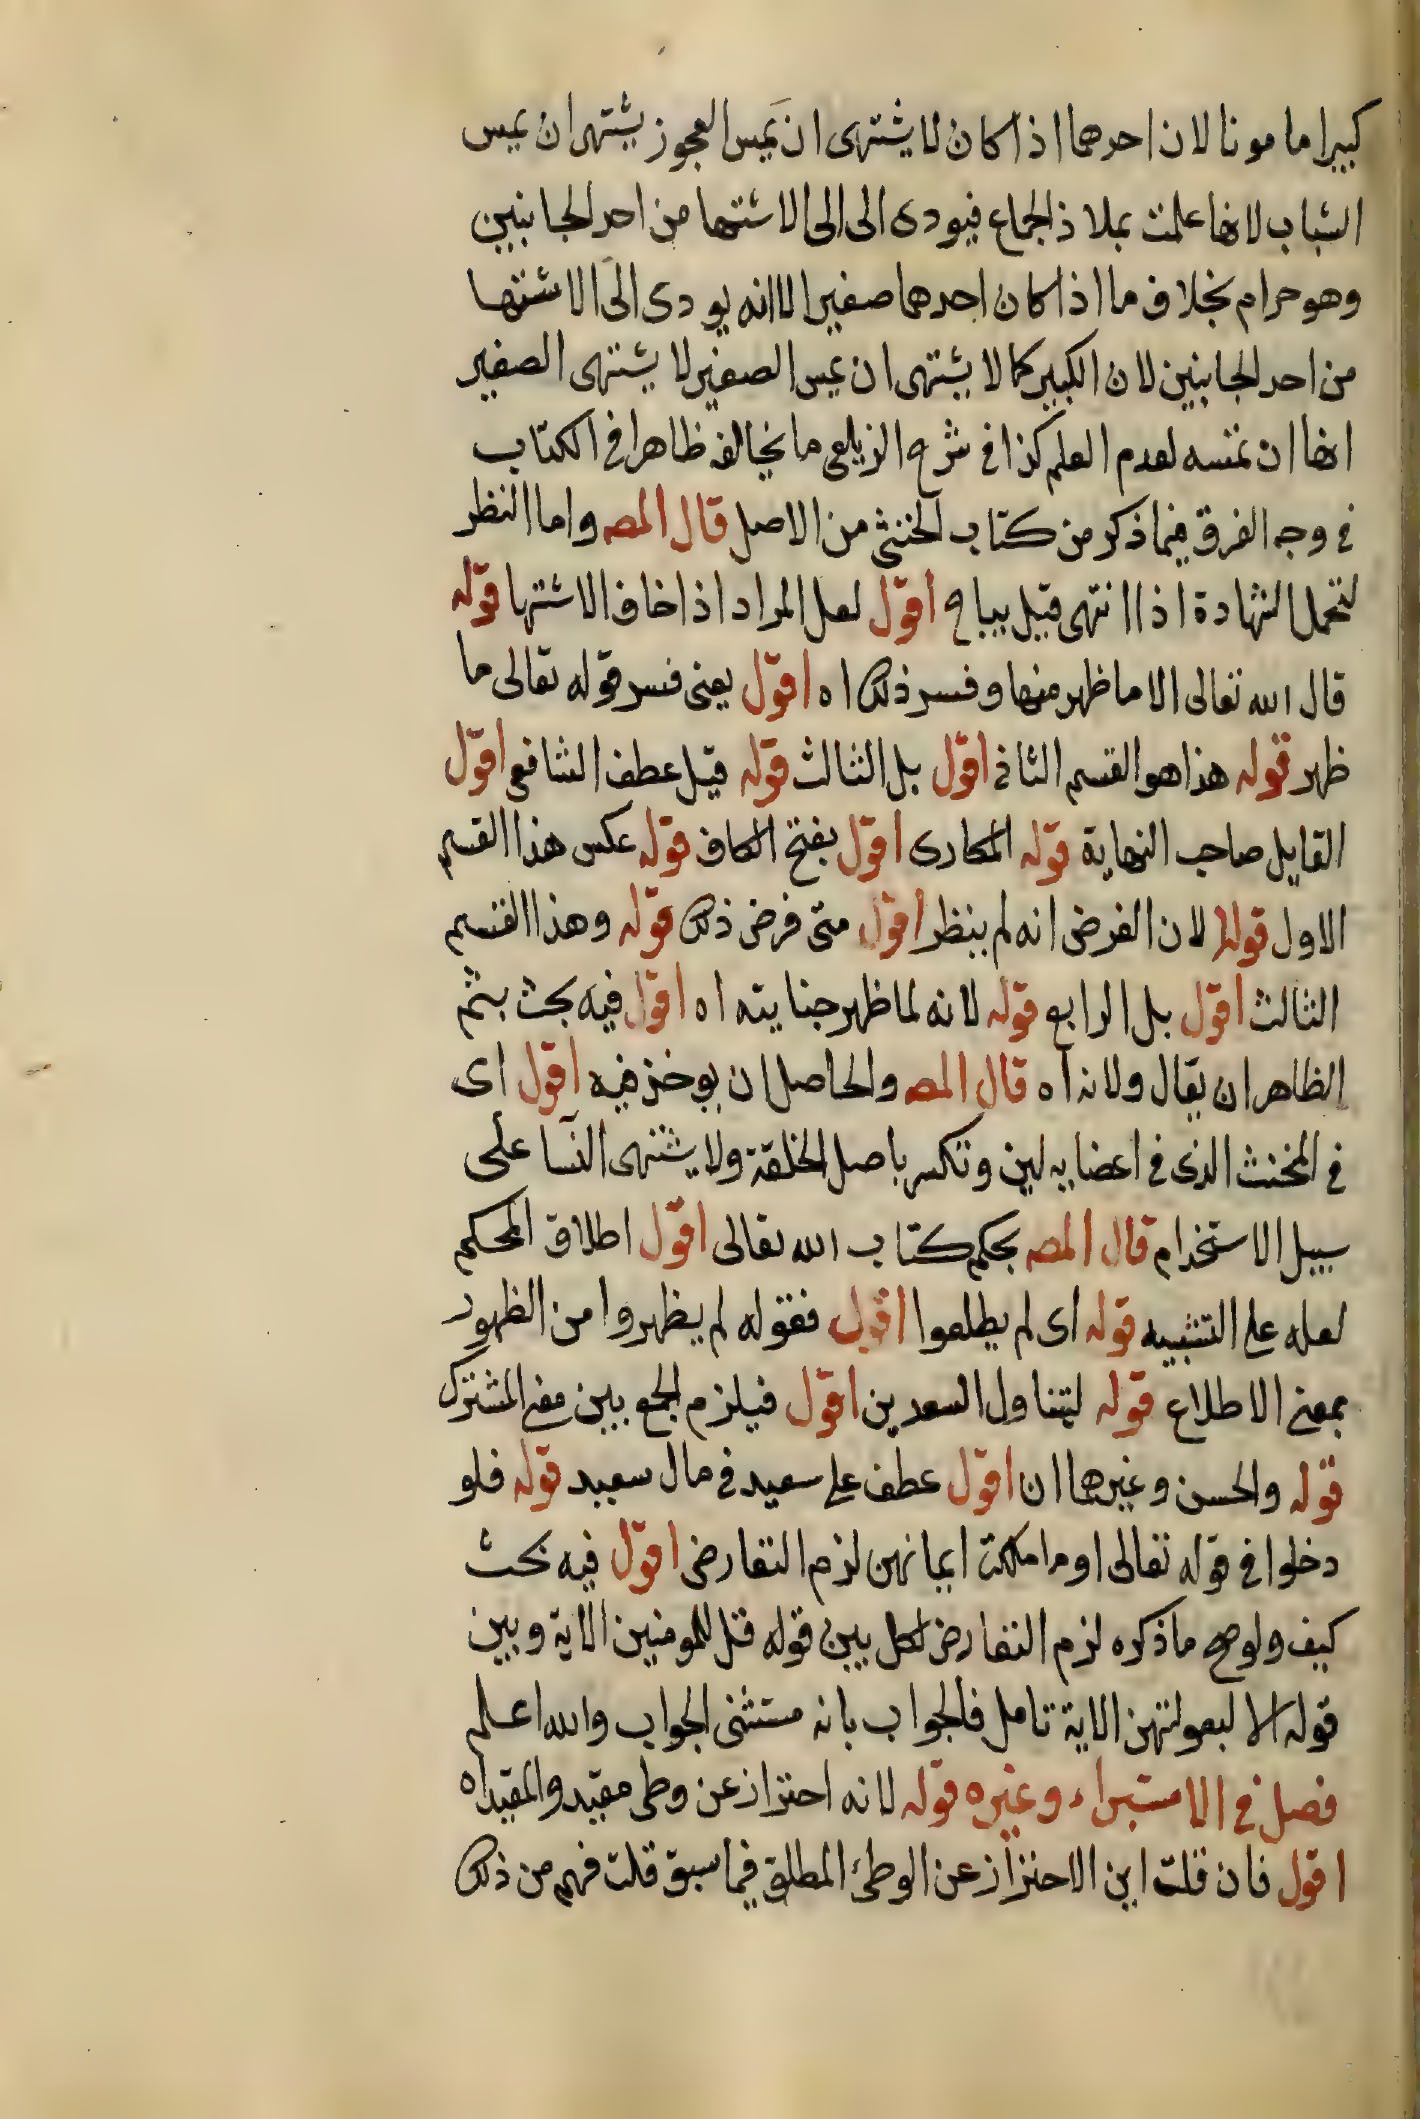 كبيرا مامونا لان احدهما اذا كان لا يشتهى ان يمس العجوز يشتهى ان يمس
الشباب لانها علمت بملاذ الجماع فيودى الى الى الاشتها من احد الجانبين
وهو حرام بخلاف ما اذا كان احدهما صغيرا لا انه يودى الى الاشتها
من احد الجانبين لان الكبير كما لا يشتهى ان يمس الصغير لا يشتهى الصغير
انها ان تمسه لعدم العلم كذا فى شرح الزيلعى ما يخالفه ظاهرا فى الكتاب
فى وجه الفرق فيما ذكر من كتاب الخنثى من الاصل قال المصه واما النظر
لتحمل الشهادة اذا انتهى قيل يباح اقول لعل المراد اذا خاف الاشتها قوله
قال الله تعالى الا ما ظهر منها وفسر ذلك اه اقول يعنى فسر قوله تعالى ما
ظهر قوله هذا هو القسم الثانى اقول بل الثالث قوله قيل عطف الشافعى اقول
القايل صاحب النهاية قوله المكارى اقول بفتح الكاف قوله عكس هذا القسم
الاول قوله لان الفرض انه لم ينظر اقول متى فرض ذلك قوله وهذا القسم
الثالث اقول بل الرابع قوله لانه لما ظهر جنايته اه اقول فيه بحث بثم
الظاهر ان يقال ولانه اه قال المصه والحاصل ان يوخذ فيه اقول اى
فى المخنث الذى فى اعضايه لين وتكسر باصل الخلقة ولا يشتهى النسا على
سبيل الاستخدام قال المصه بحكم كتاب الله تعالى اقول اطلاق المحكم
لعله على التشبيه قوله اى لم يطلعوا اقول فقوله لم يظهروا من الظهور
بمعنى الاطلاع قوله ليتناول السعدين اقول فيلزم الجمع بين معنى المشترك
قوله والحسن وغيرهما ان اقول عطف على سعيد فى مال سعيد قوله فلو
دخلوا فى قوله تعالى او ما ملكت ايمانهن لزم التعارض اقول فيه بحث
كيف ولو صح ما ذكره لزم التعارض لكل بين قوله قل للمومنين الاية وبين
قوله الا لبعولتهن الاية تامل فالجواب بانه مستثنى الجواب والله اعلم
فصل فى الاستبراء وغيره قوله لانه احتراز عن وطى مقيد والمقيد اه
اقول فان قلت اين الاحتراز عن الوطئ المطلق فيما سبق قلت فهم من ذلك